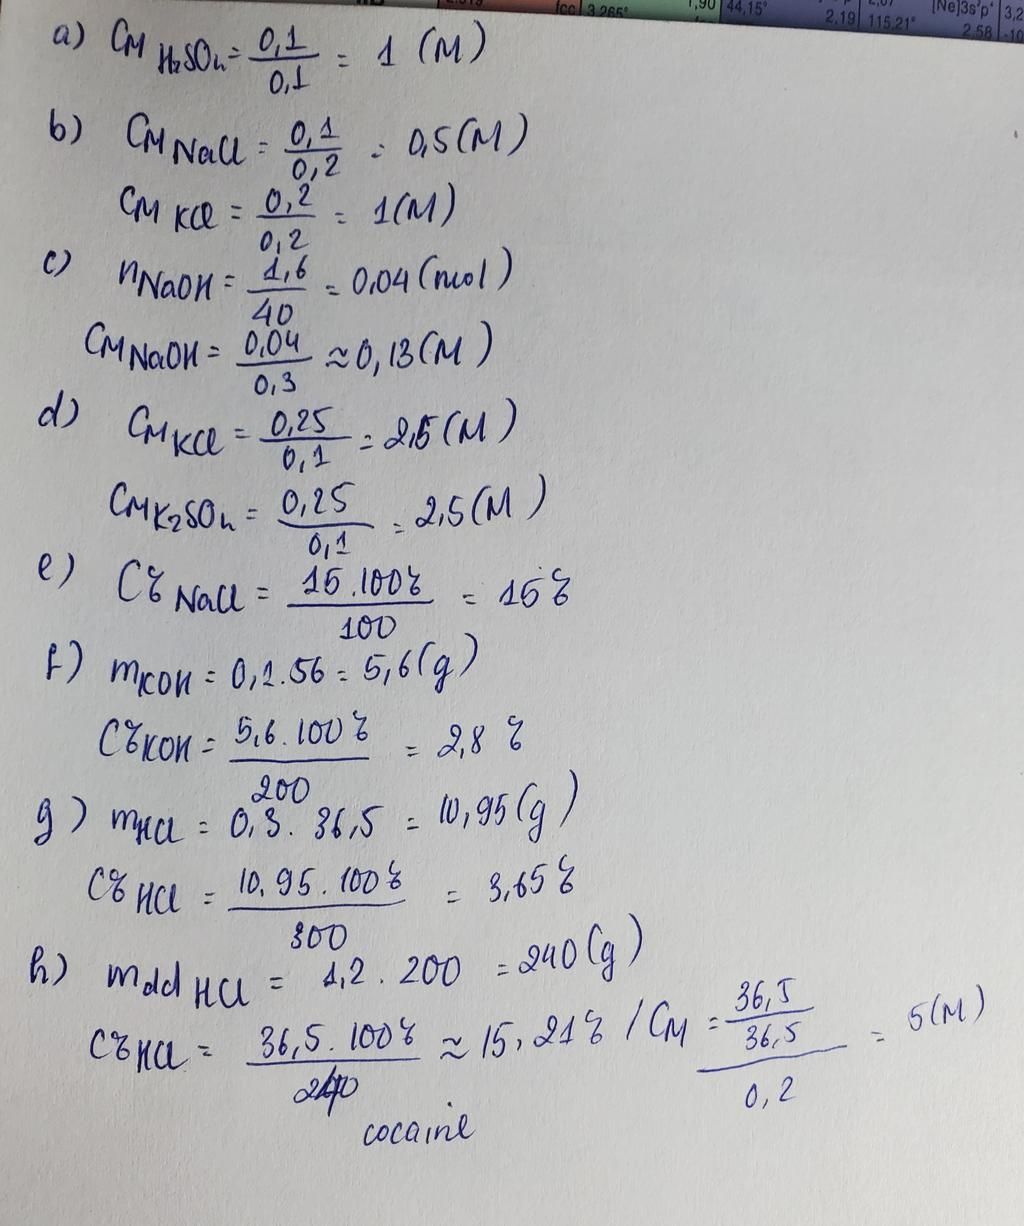 fcc 3,265° 1,90 44,15° 2,19 115,21° [Ne]3s²p⁴ 2,58 3,2 -10
a) CM H₂SO₄ = 0,1/0,1 = 1 (M)
b) CM NaCl = 0,1/0,2 = 0,5(M)
CM KCl = 0,2/0,2 = 1(M)
c) nNaOH = 1,6/40 = 0,04(mol)
CM NaOH = 0,04/0,3 ≈ 0,13(M)
d) CM KCl = 0,25/0,1 = 2,5(M)
CM K₂SO₄ = 0,25/0,1 = 2,5(M)
e) C% NaCl = 15.100%/100 = 15%
f) mKOH = 0,1.56 = 5,6(g)
C% KOH = 5,6.100%/200 = 2,8 %
g) mHCl = 0,3. 36,5 = 10,95(g)
C% HCl = 10,95.100%/300 = 3,65%
h) mdd HCl = 1,2 . 200 = 240(g)
C% HCl = 36,5.100%/240 ≈ 15,21% / CM = 36,5/36,5/0,2 = 5(M)
cocaine